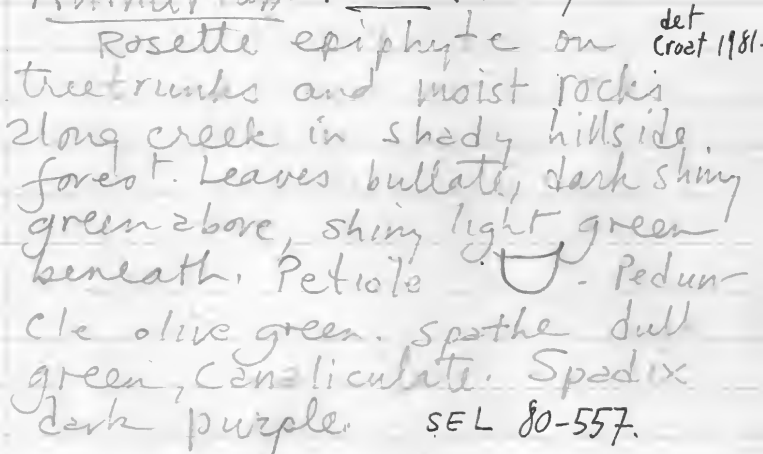 Anthurium
Rosette epiphyte on det
Croat 1981-
treetrunks and moist rocks
along creek in shady hillside
forest. Leaves bullate, dark shiny
green above, shiny light green
beneath. Petiole . Pedun-
cle olive green. Spathe dull
green, canaliculate. Spadix
dark purple. SEL 80-557.